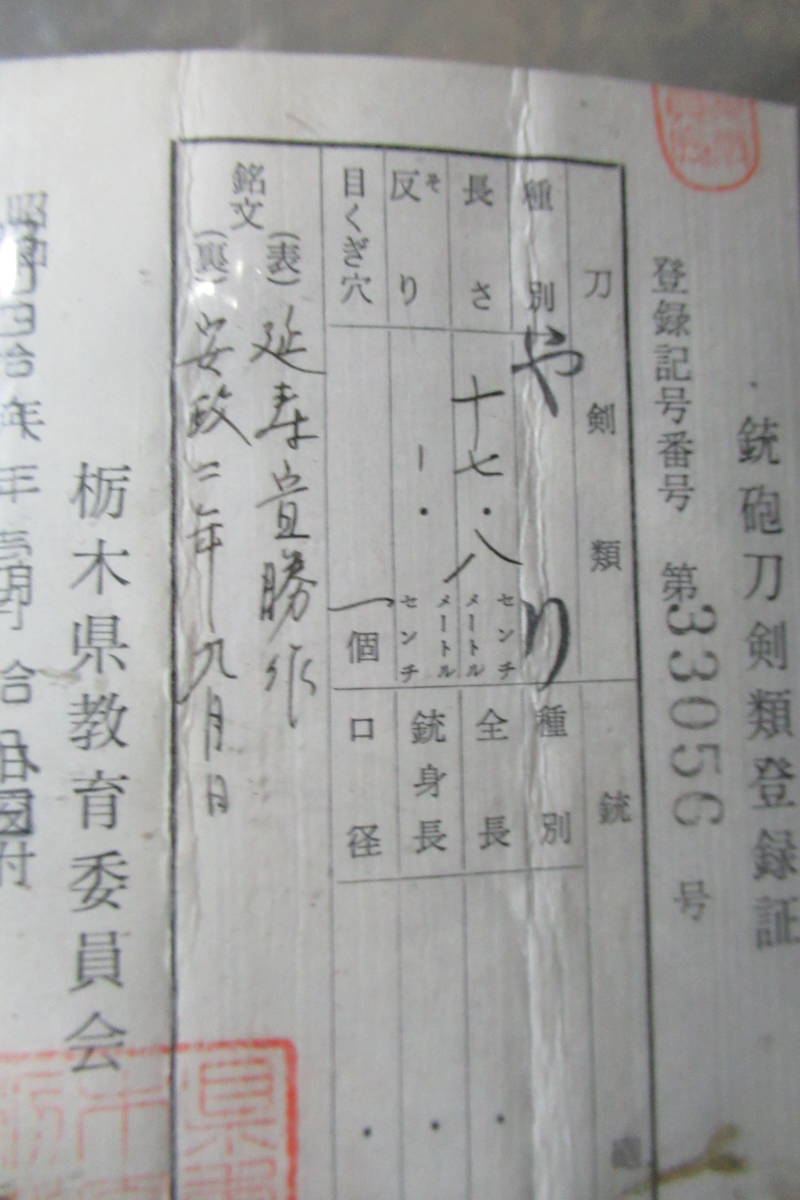 銃砲刀剣類登録証
登録記号番号 第33056号
刀剣類
種別 やり
長さ 十七・八 センチメートル
反り そ ー・ センチメートル
目くぎ穴 一個
銘文
(表) 延寿宣勝作
(裏) 安政二年九月日
銃砲
種別
全長 ・
銃身長 ・
口径 ・
栃木県教育委員会